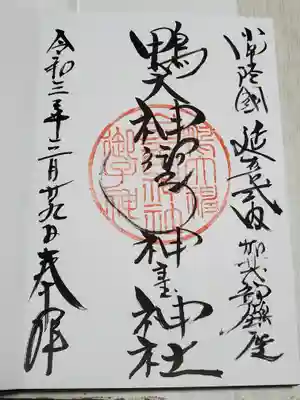 常陸國 延喜式内 加茂部鎮座
鴨大神御子神主玉神社
令和三年 月廿 日奉拝
御子神